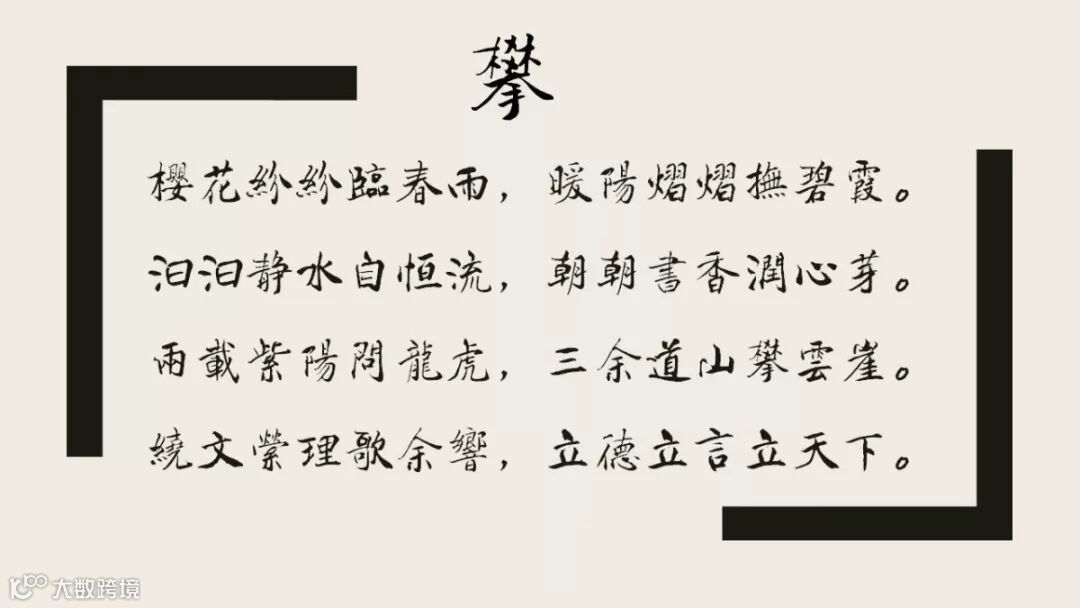 攀
櫻花紛紛臨春雨，暖陽熠熠撫碧霞。
汩汩静水自恒流，朝朝書香潤心芽。
兩載紫陽問龍虎，三余道山攀雲崖。
繞文縈理歌余響，立德立言立天下。
大数跨境